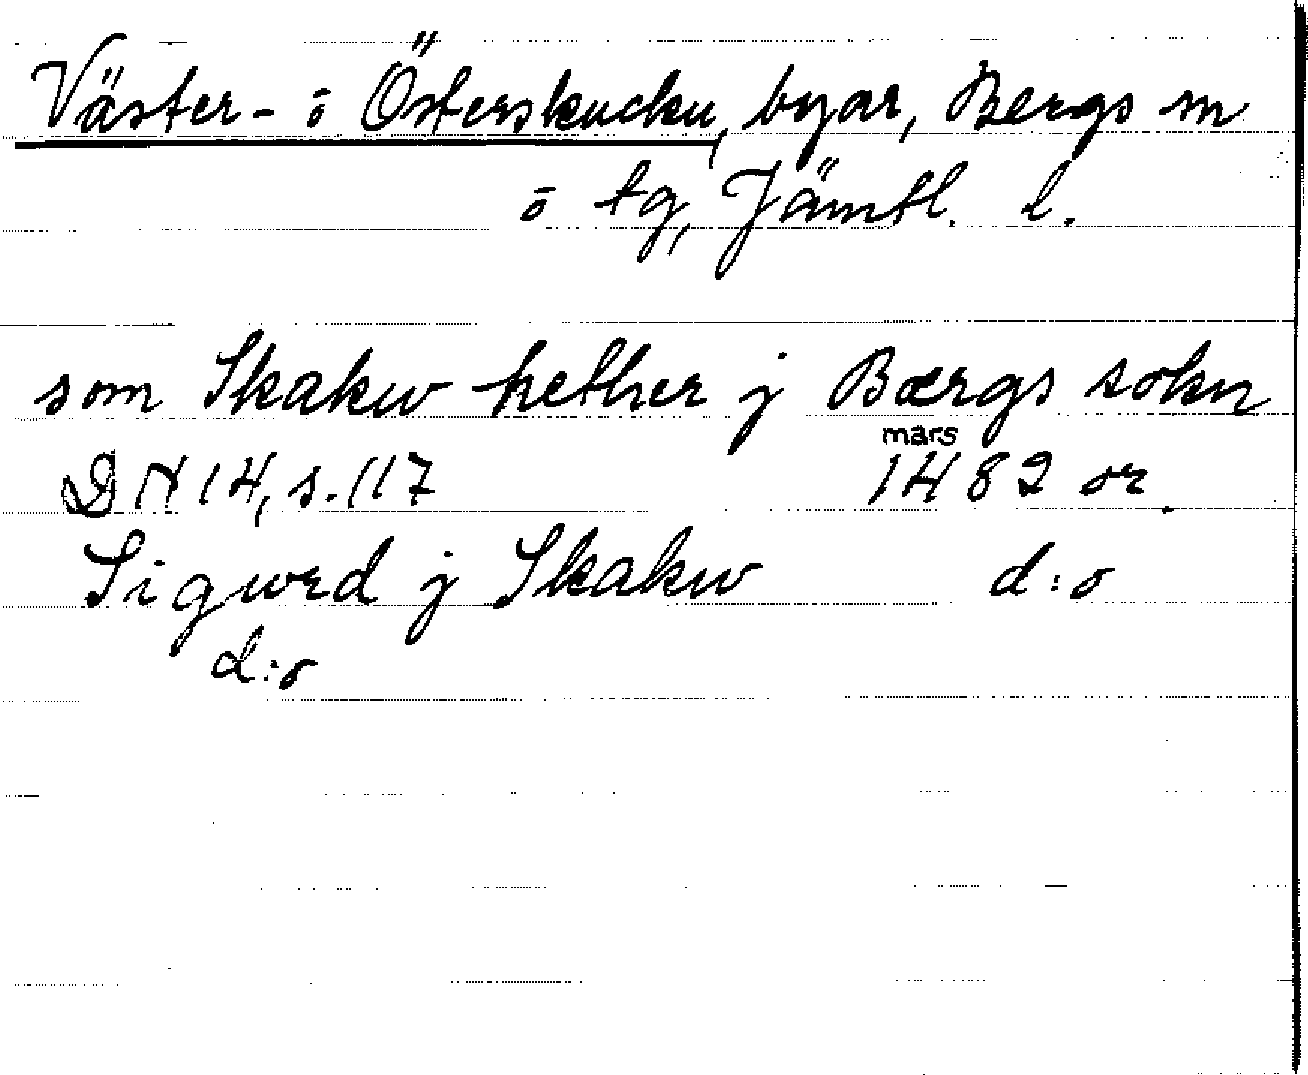 Väster- o Österskucku, byar, Bergs sn
o tg, Jämtl. l.
som Skakw hether j Bærgs sokn
mars
DN 14, s. 117 1482 or.
Sigwrd j Skakw d:o
d:o